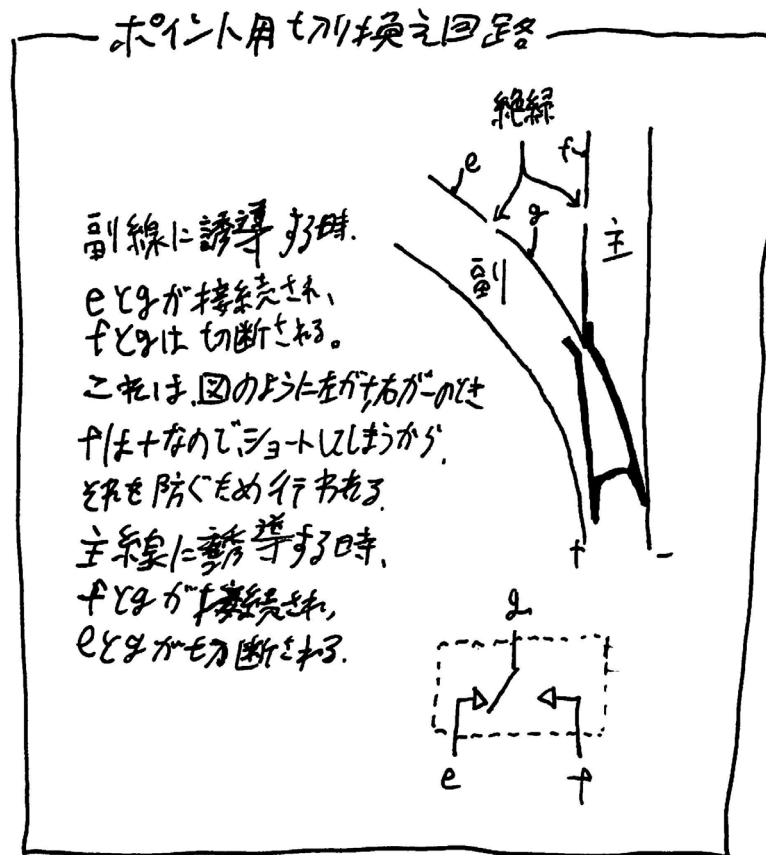 ポイント用切り換え回路
絶縁
e
f
g
主
副
副線に誘導する時.
eとgが接続され、
fとgは切断される。
これは、図のように左が+,右が-のとき
fは+なので、ショートしてしまうから、
それを防ぐため行われる.
主線に誘導する時、
fとgが接続され,
eとgが切断される.
+
-
g
e
f